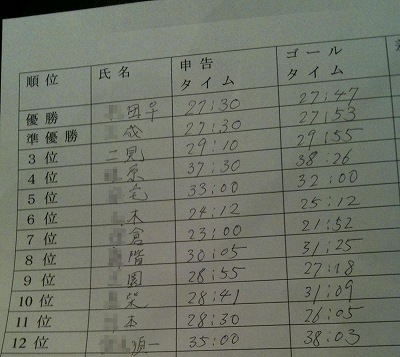 順位 氏名 申告タイム ゴールタイム
優勝 27:30 27:47
準優勝 27:30 27:53
3位 二見 29:10 29:55
4位 37:30 38:26
5位 宅 33:00 32:00
6位 木 24:12 25:12
7位 倉 23:00 21:52
8位 階 30:05 31:25
9位 園 28:55 27:18
10位 栄 28:41 31:09
11位 本 28:30 26:05
12位 一 35:00 38:03